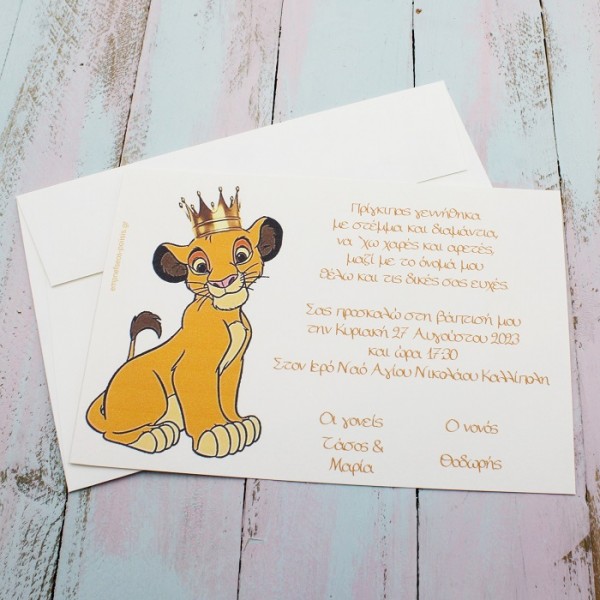 Πρίγκιπας γεννήθηκα
με στέμμα και διαμάντια,
να 'χω χαρές και αρετές,
μαζί με το όνομά μου
θέλω και τις δικές σας ευχές.
Σας προσκαλώ στη βάπτισή μου
την Κυριακή 27 Αυγούστου 2023
και ώρα 17:30
Στον Ιερό Ναό Αγίου Νικολάου Καλλίπολη
Οι γονείς
Τάσος &
Μαρία
Ο νονός
Θοδωρής